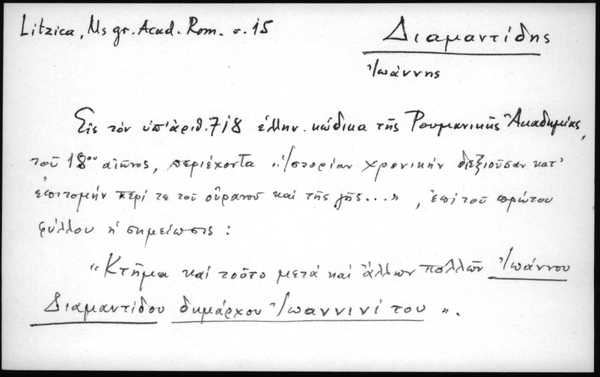 Litzica, Ms gr. Acad. Rom. σ. 15
Διαμαντίδης
Ἰωάννης
Εἰς τὸν ὑπ' ἀριθ. 718 ἑλλην. κώδικα τῆς Ρουμανικῆς Ἀκαδημίας,
τοῦ 18ου αἰῶνος, περιέχοντα «Ἱστορίαν χρονικὴν διεξιοῦσαν κατ'
ἐπιτομὴν περί τε τοῦ οὐρανοῦ καὶ τῆς γῆς...», ἐπὶ τοῦ πρώτου
φύλλου ἡ σημείωσις:
«Κτῆμα καὶ τοῦτο μετὰ καὶ ἄλλων πολλῶν Ἰωάννου
Διαμαντίδου δημάρχου Ἰωαννινίτου».